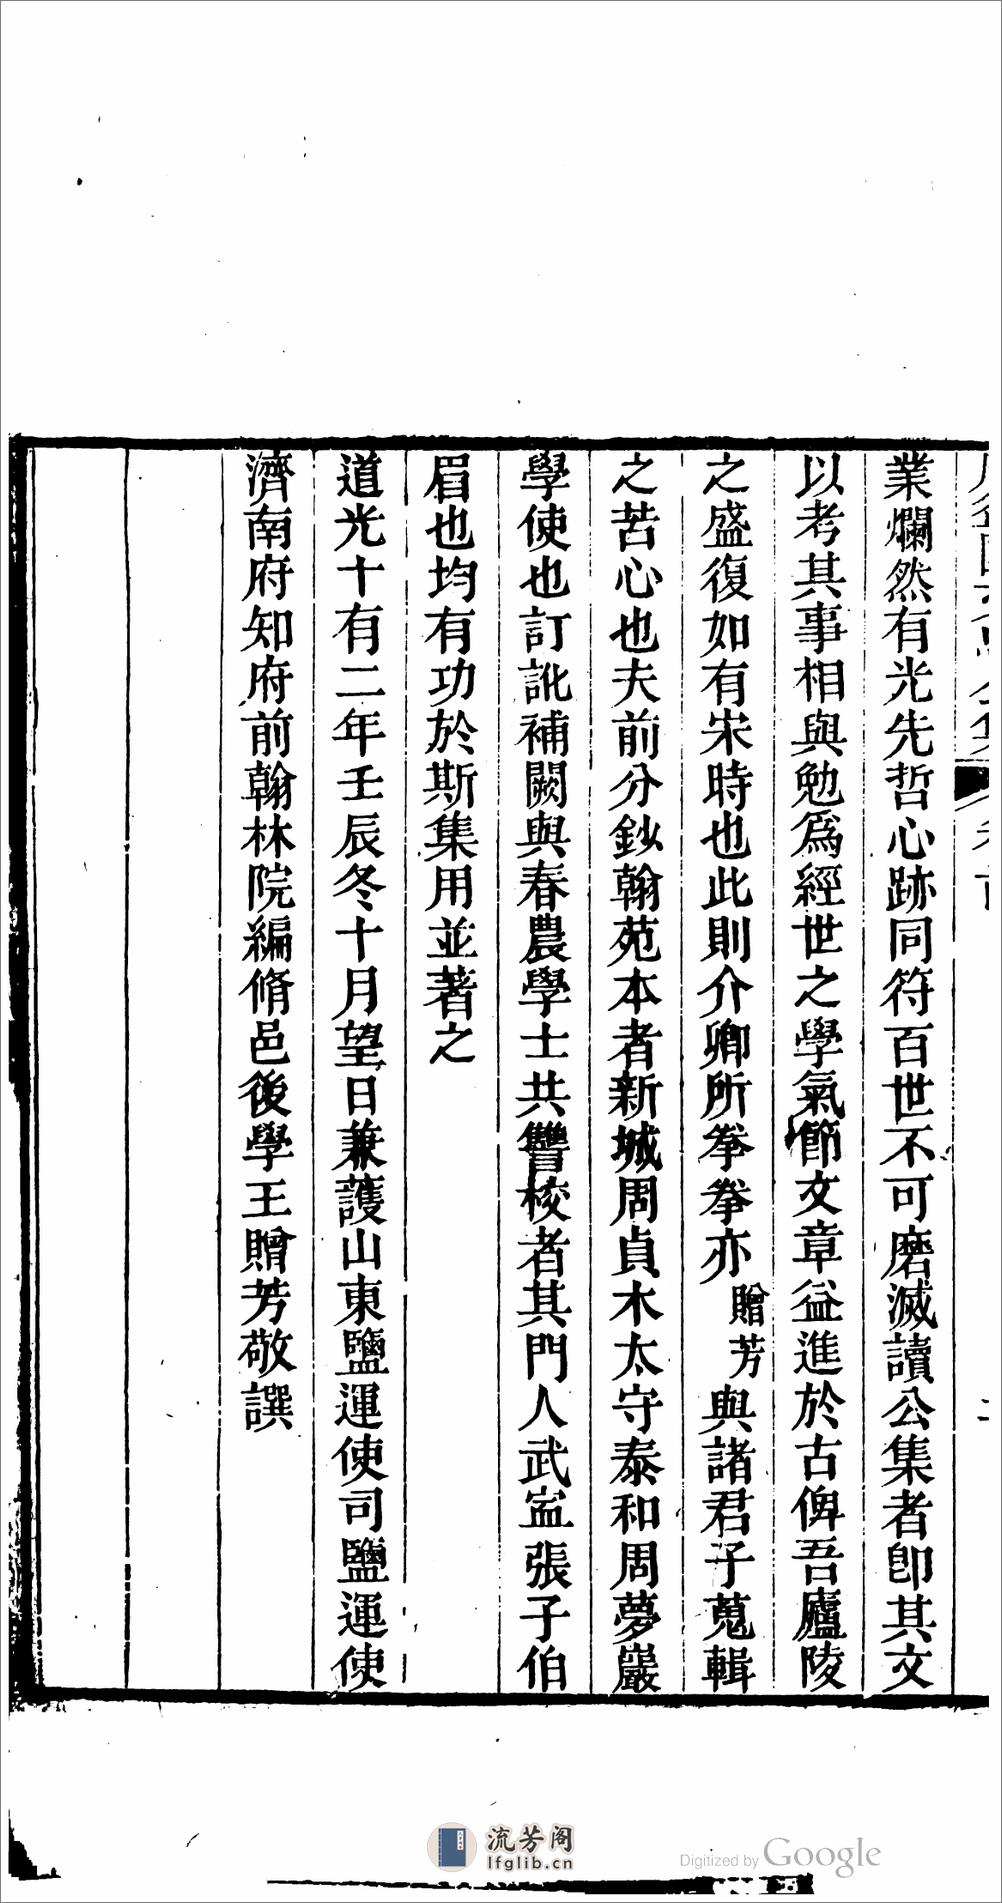 業爛然有光先哲心跡同符百世不可磨滅讀公集者卽其文
以考其事相與勉爲經世之學氣節文章益進於古俾吾廬陵
之盛復如有宋時也此則介卿所拳拳亦贈芳與諸君子蒐輯
之苦心也夫前分鈔翰苑本者新城周貞木太守泰和周夢巖
學使也訂訛補闕與春農學士共讐校者其門人武寍張子伯
眉也均有功於斯集用並著之
道光十有二年壬辰冬十月望日兼護山東鹽運使司鹽運使
濟南府知府前翰林院編脩邑後學王贈芳敬譔
流芳阁
lfglib.cn
Digitized by Google